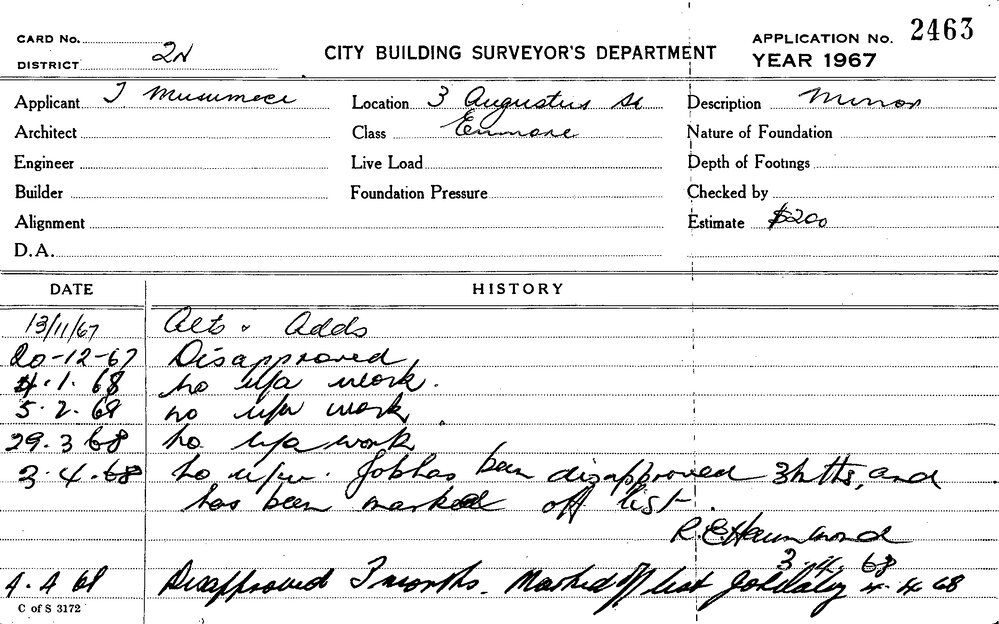 CARD No.
DISTRICT 2N
CITY BUILDING SURVEYOR'S DEPARTMENT
APPLICATION No. 2463
YEAR 1967
Applicant J Musumeci Location 3 Augustus St Description Minor
Architect Class Enmore Nature of Foundation
Engineer Live Load Depth of Footings
Builder Foundation Pressure Checked by
Alignment Estimate $200
D.A.
DATE HISTORY
13/11/67 Alts & Adds
20-12-67 Disapproved
4.1.68 no u/a work.
5.2.68 no u/a work
29.3 68 no u/a work
3.4.68 no u/w. Job has been disapproved 3 mths, and
has been marked off list
R.E. Hammond
3.4.68
4.4 68 Disapproved 3 months. Marked off list 4.4 68
C of S 3172